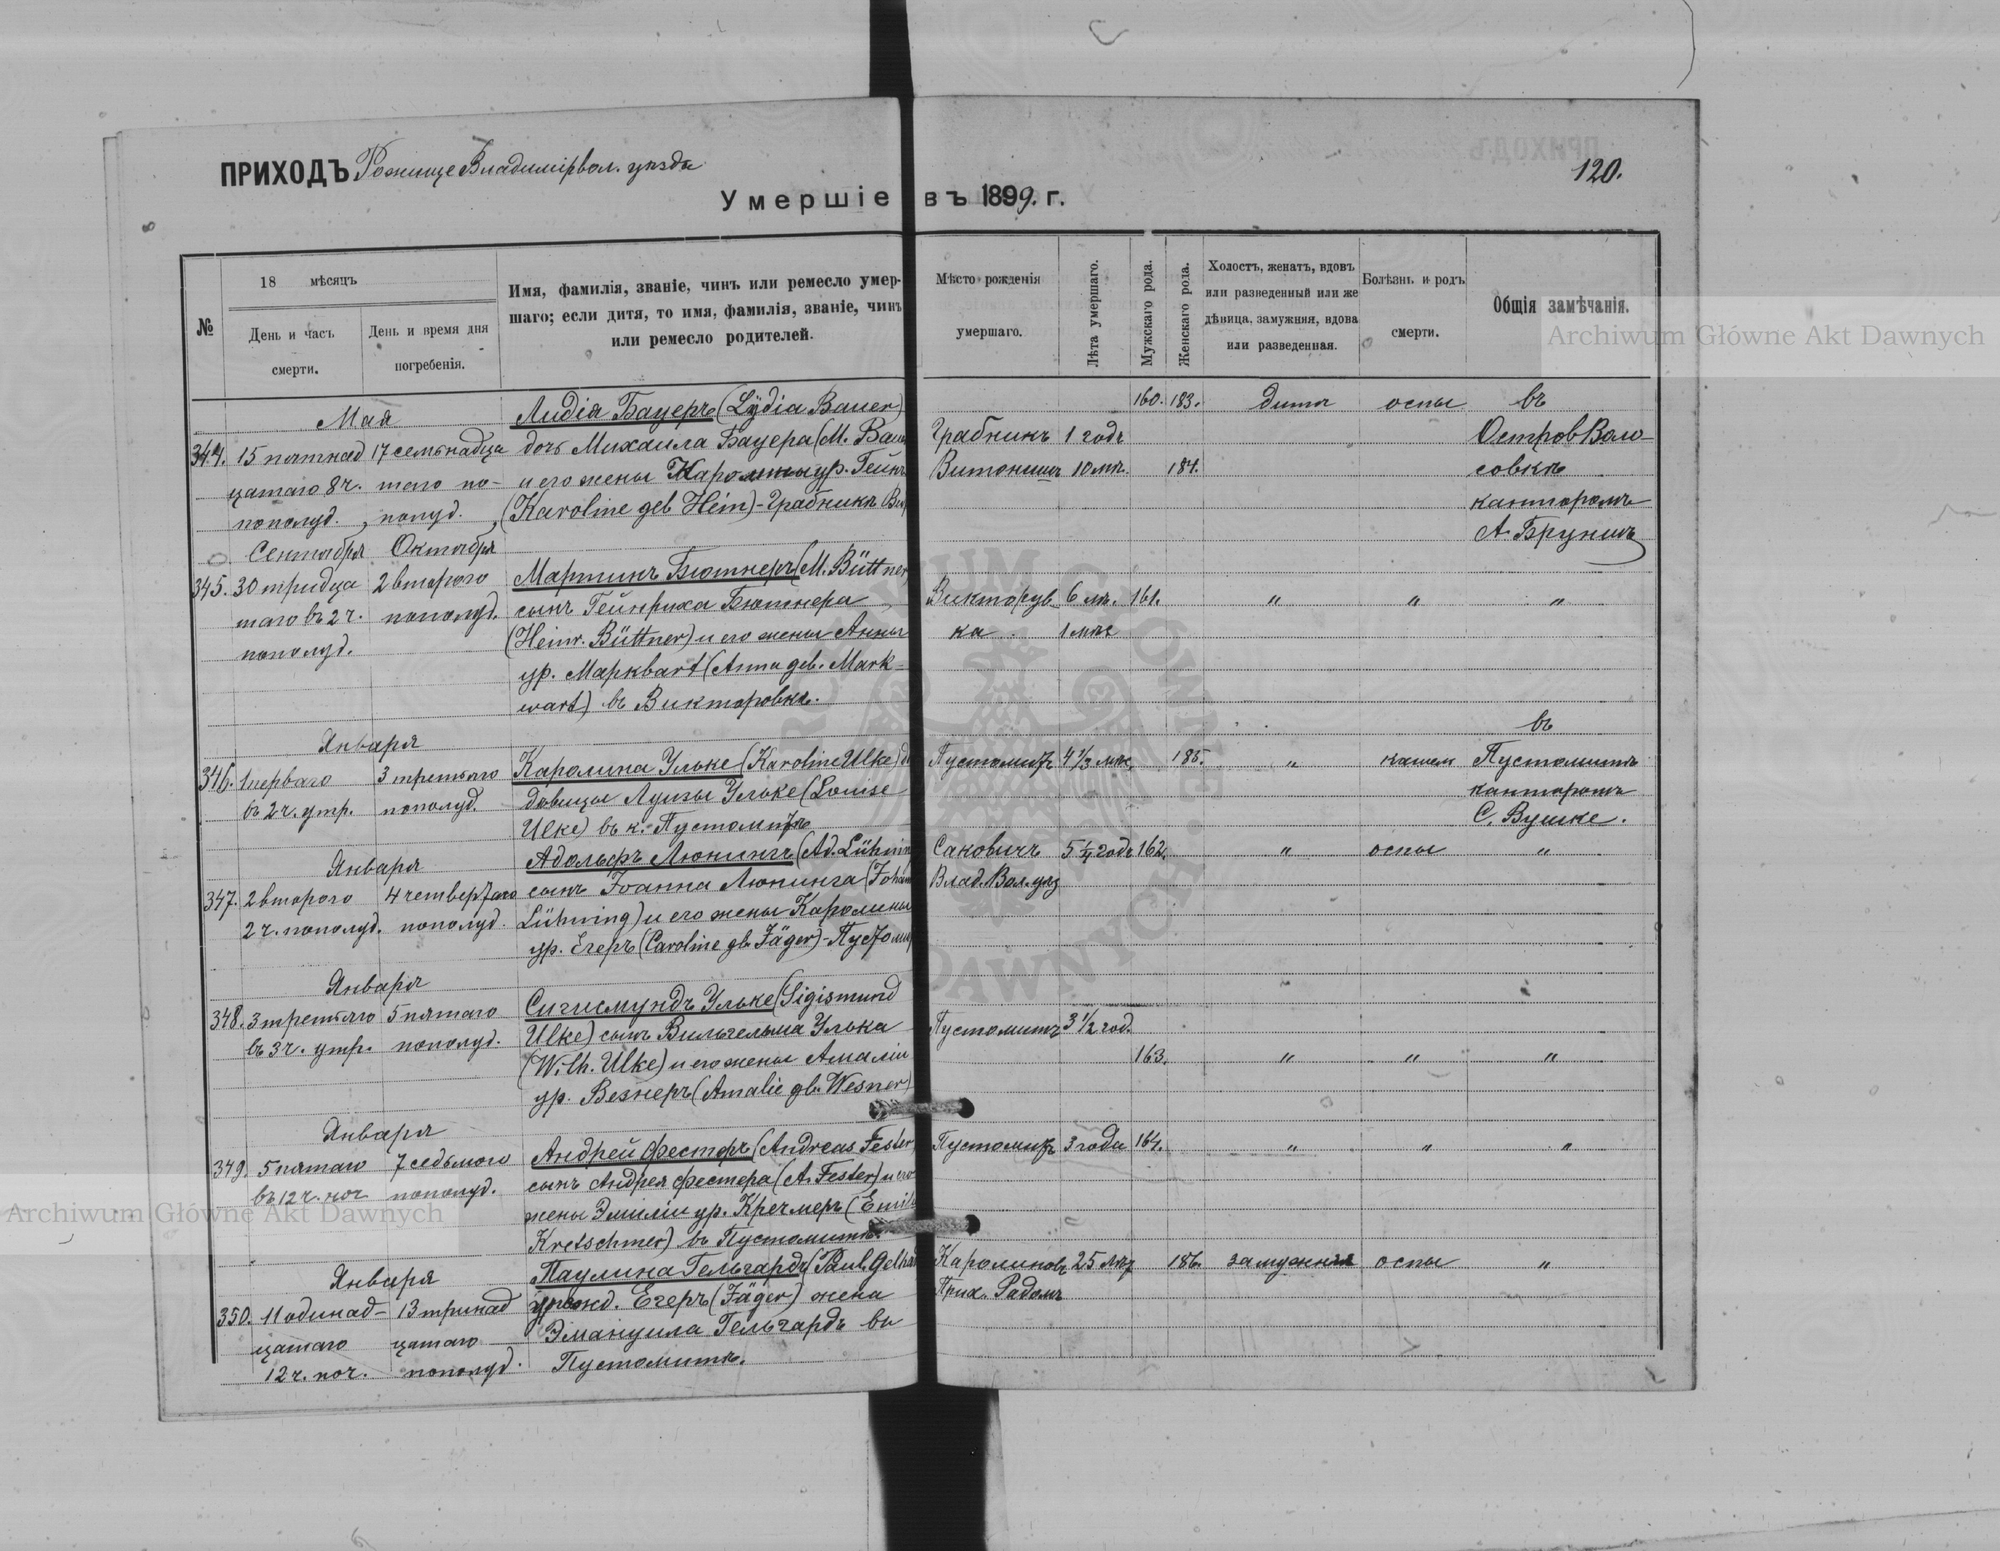 ПРИХОДЪ Рожище Владимірвол. уѣзда
120.
Умершіе въ 1899. г.
№
18 мѣсяцъ
День и часъ смерти.
День и время дня погребенія.
Имя, фамилія, званіе, чинъ или ремесло умер-
шаго; если дитя, то имя, фамилія, званіе, чинъ
или ремесло родителей.
Мѣсто рожденія умершаго.
Лѣта умершаго.
Мужскаго рода.
Женскаго рода.
Холостъ, женатъ, вдовъ
или разведенный или же
дѣвица, замужняя, вдова
или разведенная.
Болѣзнь и родъ смерти.
Общія замѣчанія.
Мая Лидія Бауеръ (Lydia Bauer) 160. 183. дитя оспы въ
344. 15 пятнад 17 семьнадца дочь Михаила Бауера (M. Bauer Грабникъ 1 годъ Островъ Воло-
цатаго 8 ч. таго по- и его жены Каролины ур. Гейнъ Витонишъ 10 мѣ. 184. совкѣ
пополуд. полуд. (Karoline geb Hein) - Грабникъ канторомъ
А. Брунишъ
Сентября Октября
345. 30 тридца 2 второго Мартинъ Бютнеръ (M. Büttner
таго въ 2 ч. пополуд. сынъ Гейнриха Бютнера Викторув- 6 лѣ. 161. " " "
пополуд. (Heinr. Büttner) и его жены Анны ка 1 мѣс
ур. Маркварт (Anna geb. Mark-
wart) въ Викторовкѣ.
Января въ
346. 1 перваго 3 третьяго Каролина Ульке (Karoline Ulke) Пустомитъ 4 1/3 мѣс. 185. " кашель Пустомитѣ
в 2 ч. утр. пополуд. дѣвицы Луизы Ульке (Louise канторомъ
Ulke) въ к. Пустомитѣ С. Вушке.
Января Адольфъ Люнингъ (Ad. Lühning Саковичъ 5 1/4 годъ 162. " оспы "
347. 2 второго 4 четвертаго сынъ Іоанна Люнинга (Johann Влад. Вол. уѣз
2 ч. пополуд. пополуд. Lühning) и его жены Каролины
ур. Егеръ (Caroline gb. Jäger) - Пустомит
Января
348. 3 третьяго 5 пятаго Сигисмундъ Ульке (Sigismund
въ 3 ч. утр. пополуд. Ulke) сынъ Вильгельма Улька Пустомитъ 3 1/2 год.
(Wilh. Ulke) и его жены Амаліи 163. " " "
ур. Везнеръ (Amalie gb. Wesner)
Января
349. 5 пятаго 7 седьмого Андрей Фестеръ (Andreas Fester Пустомитъ 3 года 164. " " "
въ 12 ч. ноч пополуд. сынъ Андрея Фестера (A. Fester) и его
жены Эмиліи ур. Кречмеръ (Emilie
Kretschmer) въ Пустомитѣ.
Января Паулина Гельгардъ (Paul. Gelhar Каролиновъ 25 лѣт 186. замужняя оспы "
350. 11 одинад- 13 тринад урожд. Егеръ (Jäger) жена Прих. Радомъ
цатаго цатаго Эмануила Гельгардъ въ
12 ч. ноч. пополуд. Пустомитѣ.
Archiwum Główne Akt Dawnych
Archiwum Główne Akt Dawnych